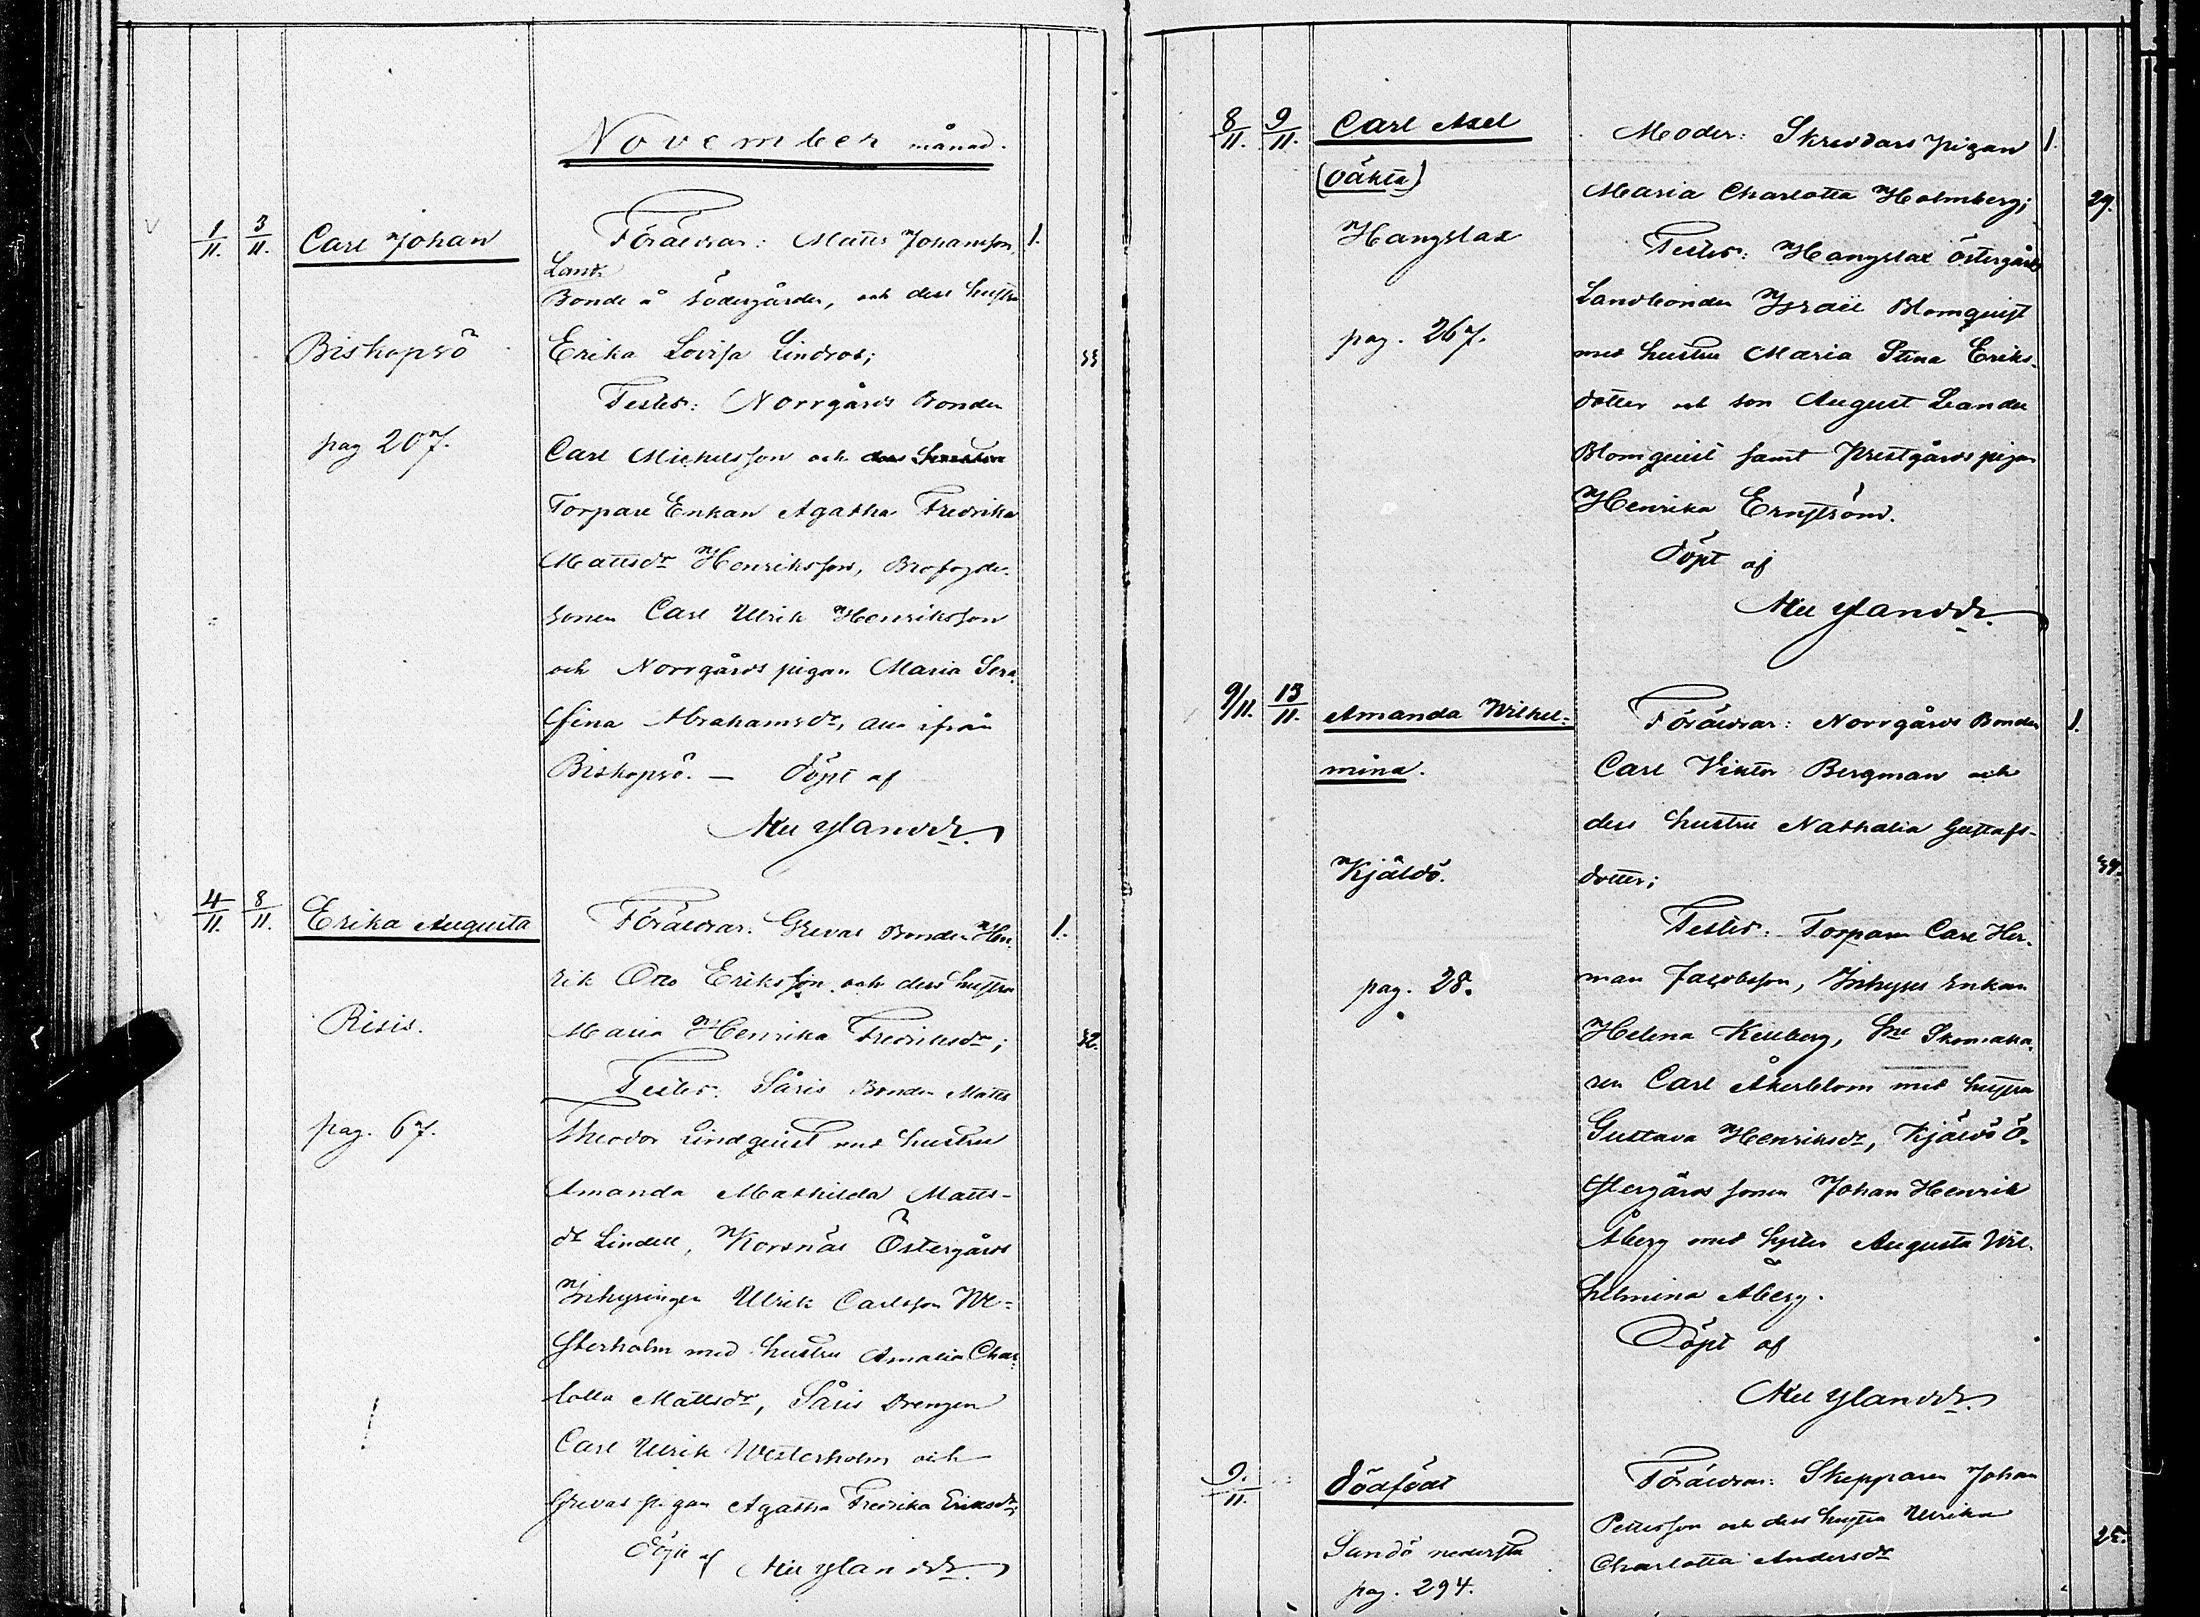 November månad.
1/11. 3/11. Carl Johan
Föräldrar: Matts Johansson, 1.
Land-
Bonde å Södergården, och dess hustru
Bishopsö
Erika Lovisa Lindros; 33
Testes: Norrgårds Bonden
pag 207.
Carl Michelsson och
Torpare Enkan Agatha Fredrika
Mattsdr Henriksson, Brofogde-
sonen Carl Ulrik Henriksson
och Norrgårds pigan Maria Sera-
fina Abrahamsdr, alla ifrån
Bishopsö. — Döpt af
4/11. 8/11. Erika Augusta
Föräldrar: Grevas Bonden Hen- 1.
rik Otto Eriksson och dess hustru
Risis.
Maria Henrika Fredriksdr; 32.
Testes: Såris Bonden Matts
pag. 67.
Theodor Lindquist med hustru
Amanda Mathilda Matts-
dr Lindell, Korsnäs Östergårds
Inhysingen Ulrik Carlsson We-
sterholm med hustru Amalia Char-
lotta Mattsdr, Såris Drengen
Carl Ulrik Westerholm och
Grevas pigan Agatha Fredrika Eriksdr;
Döpt af
8/11. 9/11. Carl Axel
Moder: Skreddars pigan 1.
(oäkta)
Maria Charlotta Holmberg; 29.
Hangslax
Testes: Hangslax Östergårds
Landbonden Israel Blomquist
pag. 267.
med hustru Maria Stina Eriks-
dotter och son August Leander
Blomquist samt Prestgårds pigan
Henrika Ernström.
Döpt af
9/11. 13/11. Amanda Wilhel-
mina.
Föräldrar: Norrgårds Bonden 1.
Carl Viktor Bergman och
dess hustru Nathalia Gustafs-
Kjäldö.
dotter; 39.
Testes: Torparn Carl Her-
pag. 28.
man Jacobsson, Inhyses Enkan
Helena Kellberg, Skomaka-
ren Carl Åkerblom med hustru
Gustava Henriksdr, Kjäldö Ö-
stergårds sonen Johan Henrik
Åberg med syster Augusta Wil-
helmina Åberg.
Döpt af
9/11. Dödfödt
Föräldrar: Skepparen Johan
Pettersson och dess hustru Ulrika 25.
Sandö nedersta
Charlotta Andersdr
pag. 294.